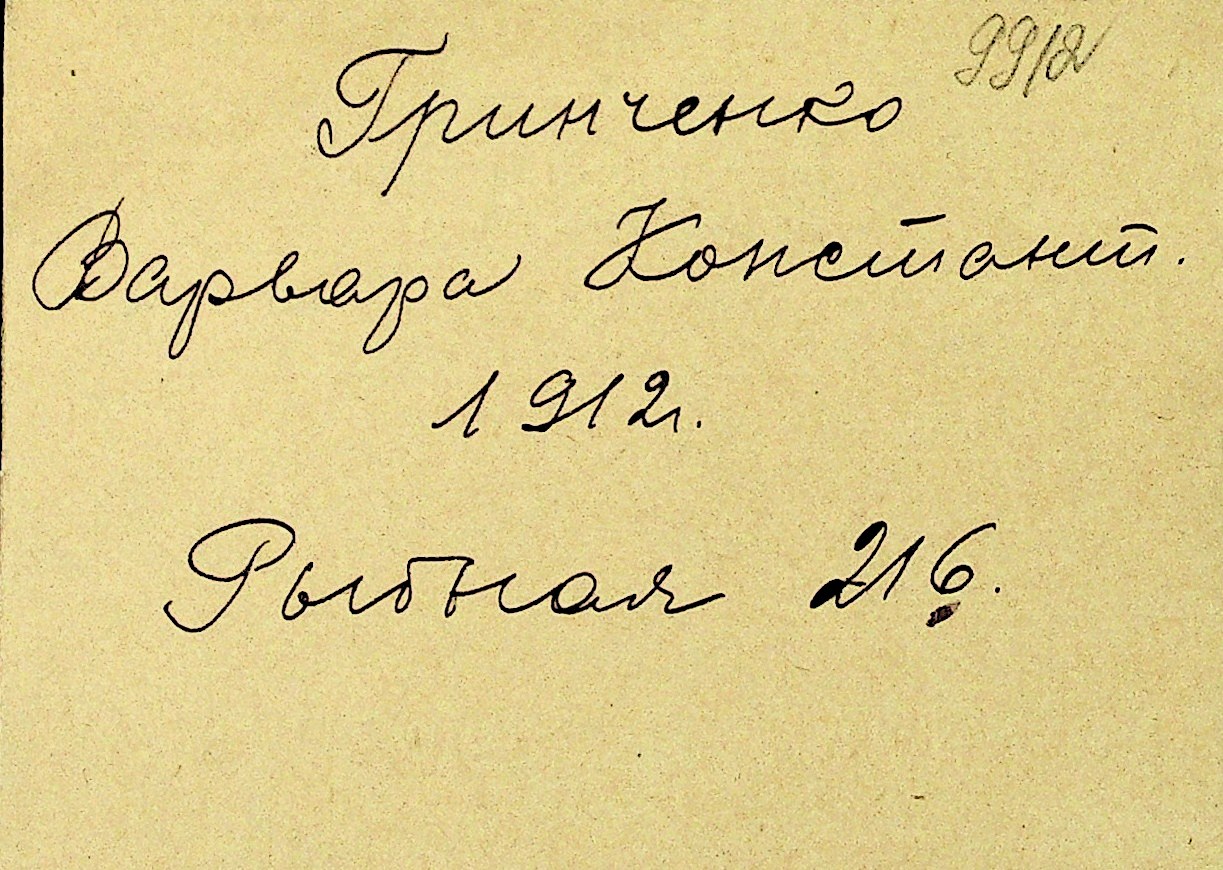 99/2
Гринченко
Варвара Констант.
1912г.
Рыбная 216.